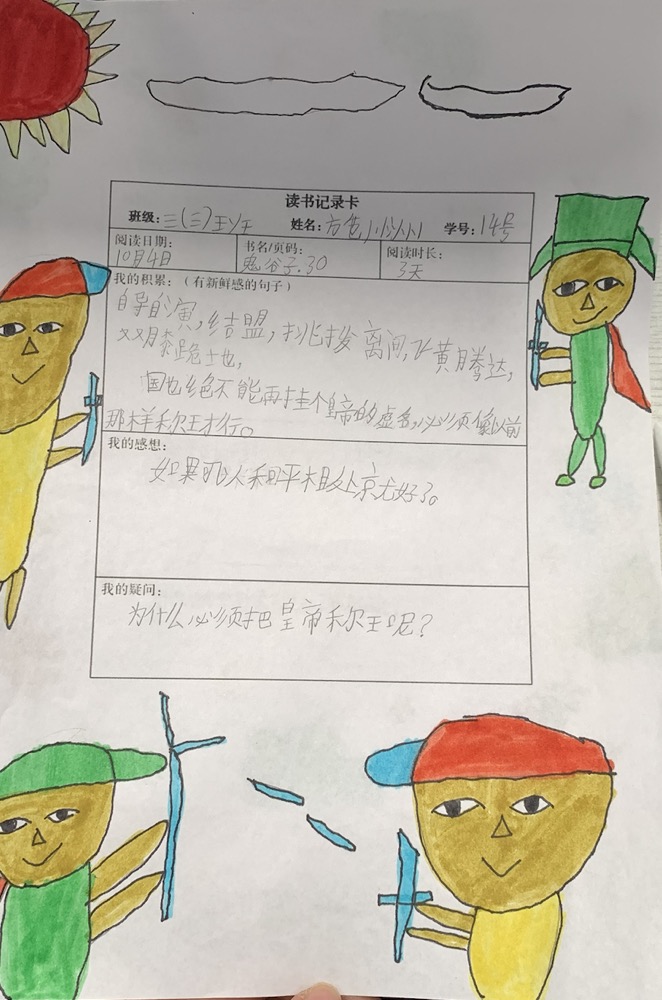 读书记录卡
班级：三(三)班 姓名：方 学号：14号
阅读日期： 书名/页码： 阅读时长：
10月4日 鬼谷子.30 3天
我的积累：（有新鲜感的句子）
自导自演，结盟，挑拨离间，飞黄腾达，
双膝跪地，
国也绝不能再挂个皇帝的虚名，必须像以前
那样称王才行。
我的感想：
如果可以和平相处就好了。
我的疑问：
为什么必须把皇帝称王呢？